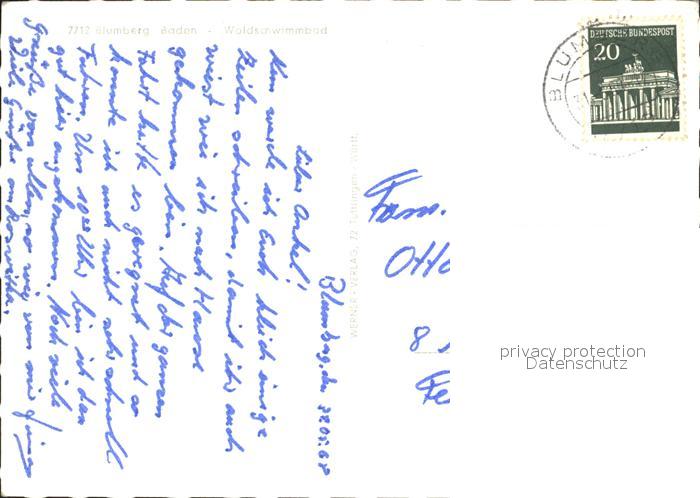 7712 Blumberg Baden - Waldschwimmbad
Blumberg, den 31.05.68
Liebe Onkel!
Nun werde ich Euch gleich einige
Zeilen schreiben, damit ihr auch
wisst wie ich nach Hause
gekommen bin. Auf der ganzen
Fahrt hatte es geregnet und so
konnte ich auch nicht sehr schnell
fahren. Um 10 Uhr bin ich dan
gut hier angekommen. Noch viele
Grüße von allen, so wie von mir
Viele Grüße an Roswitha.
WERNER-VERLAG, 72 Tuttlingen - Württ.
DEUTSCHE BUNDESPOST
20
BLUM
Fam.
Otto
8
privacy protection
Datenschutz